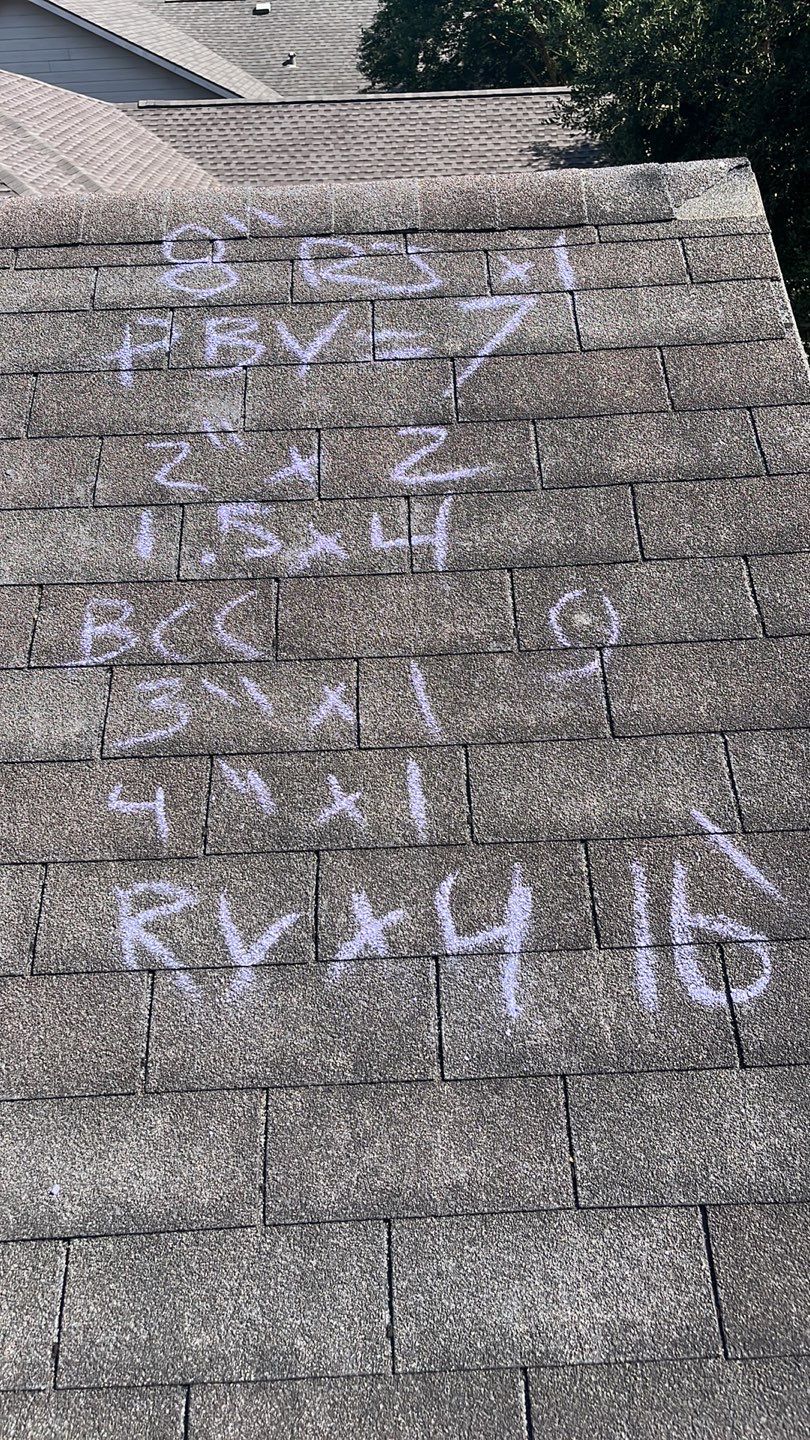 8" RJ x 1
PBV = 7
2" x 2
1.5 x 4
BCC 9
3" x 1
4" x 1
RV x 4 16'